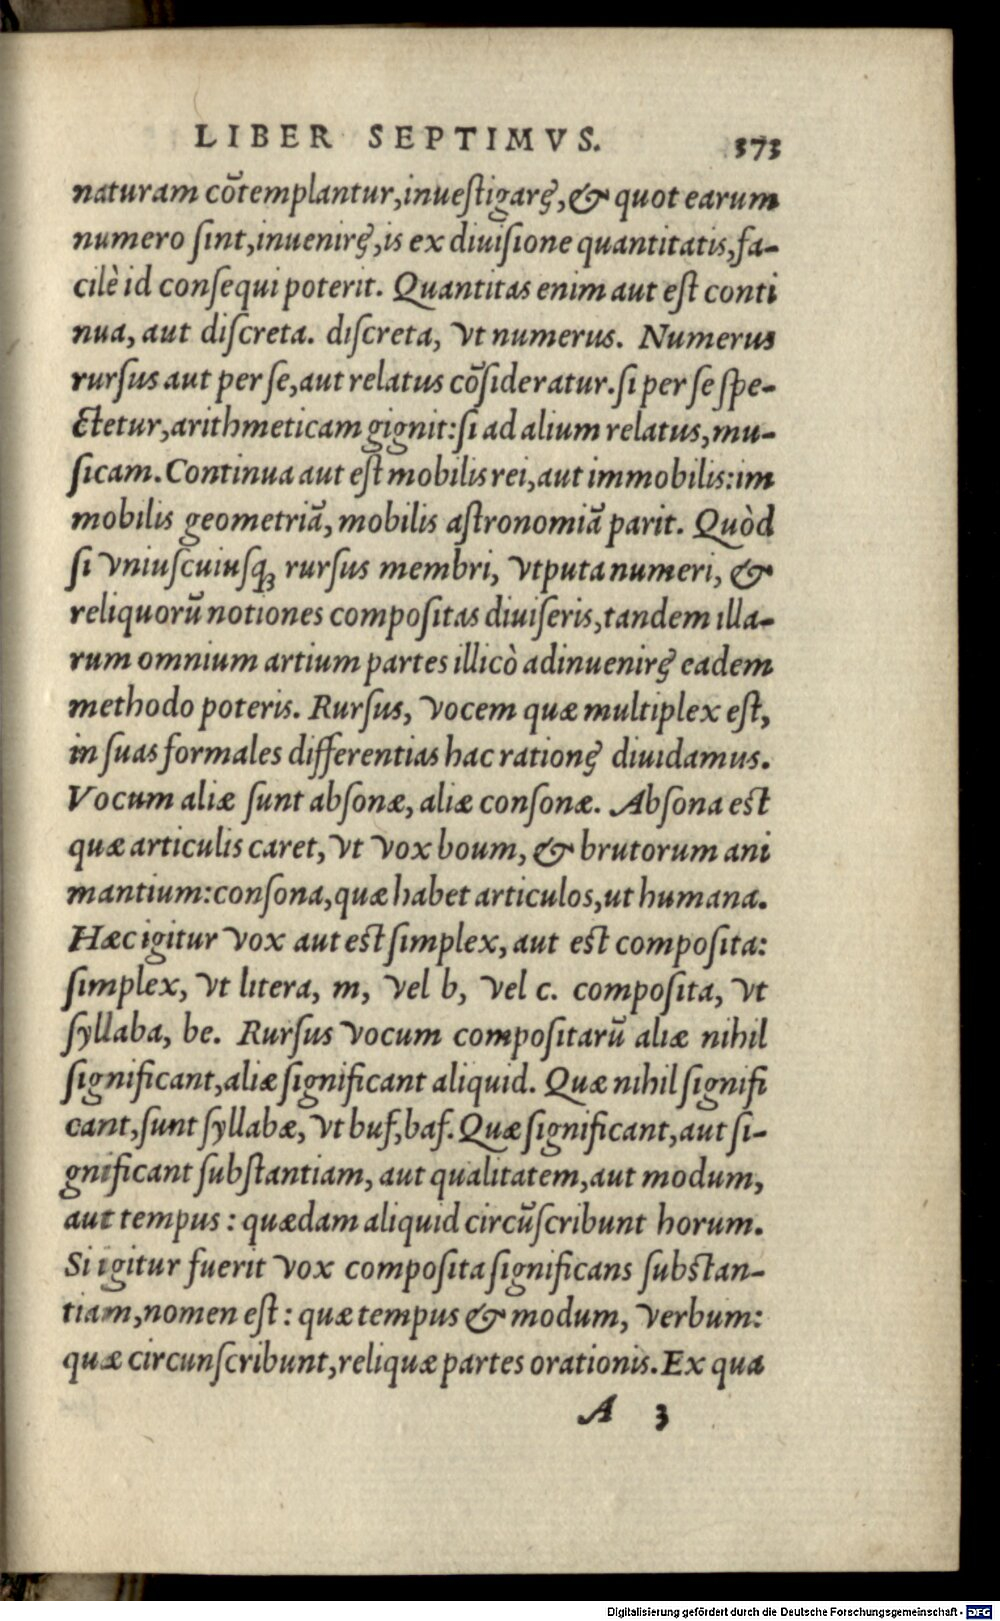 LIBER SEPTIMVS. 373
naturam cõtemplantur,inueſtigarę,& quot earum
numero ſint,inuenirę,is ex diuiſione quantitatis,fa-
cilè id conſequi poterit. Quantitas enim aut eſt conti
nua, aut diſcreta. diſcreta, vt numerus. Numerus
rurſus aut per ſe,aut relatus cõſideratur.ſi per ſe ſpe-
ctetur,arithmeticam gignit:ſi ad alium relatus,mu-
ſicam.Continua aut eſt mobilis rei,aut immobilis:im
mobilis geometriã, mobilis aſtronomiã parit. Quòd
ſi vniuſcuiuſq́; rurſus membri, vtputa numeri, &
reliquorũ notiones compoſitas diuiſeris,tandem illa-
rum omnium artium partes illicò adinuenirę eadem
methodo poteris. Rurſus, vocem quæ multiplex eſt,
in ſuas formales differentias hac rationę diuidamus.
Vocum aliæ ſunt abſonæ, aliæ conſonæ. Abſona eſt
quæ articulis caret, vt vox boum, & brutorum ani
mantium:conſona,quæ habet articulos,ut humana.
Hæc igitur vox aut eſt ſimplex, aut eſt compoſita:
ſimplex, vt litera, m, vel b, vel c. compoſita, vt
ſyllaba, be. Rurſus vocum compoſitarũ aliæ nihil
ſignificant,aliæ ſignificant aliquid. Quæ nihil ſignifi
cant,ſunt ſyllabæ, vt buf,baf. Quæ ſignificant,aut ſi-
gnificant ſubſtantiam, aut qualitatem,aut modum,
aut tempus : quædam aliquid circũſcribunt horum.
Si igitur fuerit vox compoſita ſignificans ſubſtan-
tiam,nomen eſt : quæ tempus & modum, verbum:
quæ circunſcribunt,reliquæ partes orationis. Ex qua
A 3
Digitalisierung gefördert durch die Deutsche Forschungsgemeinschaft - DFG